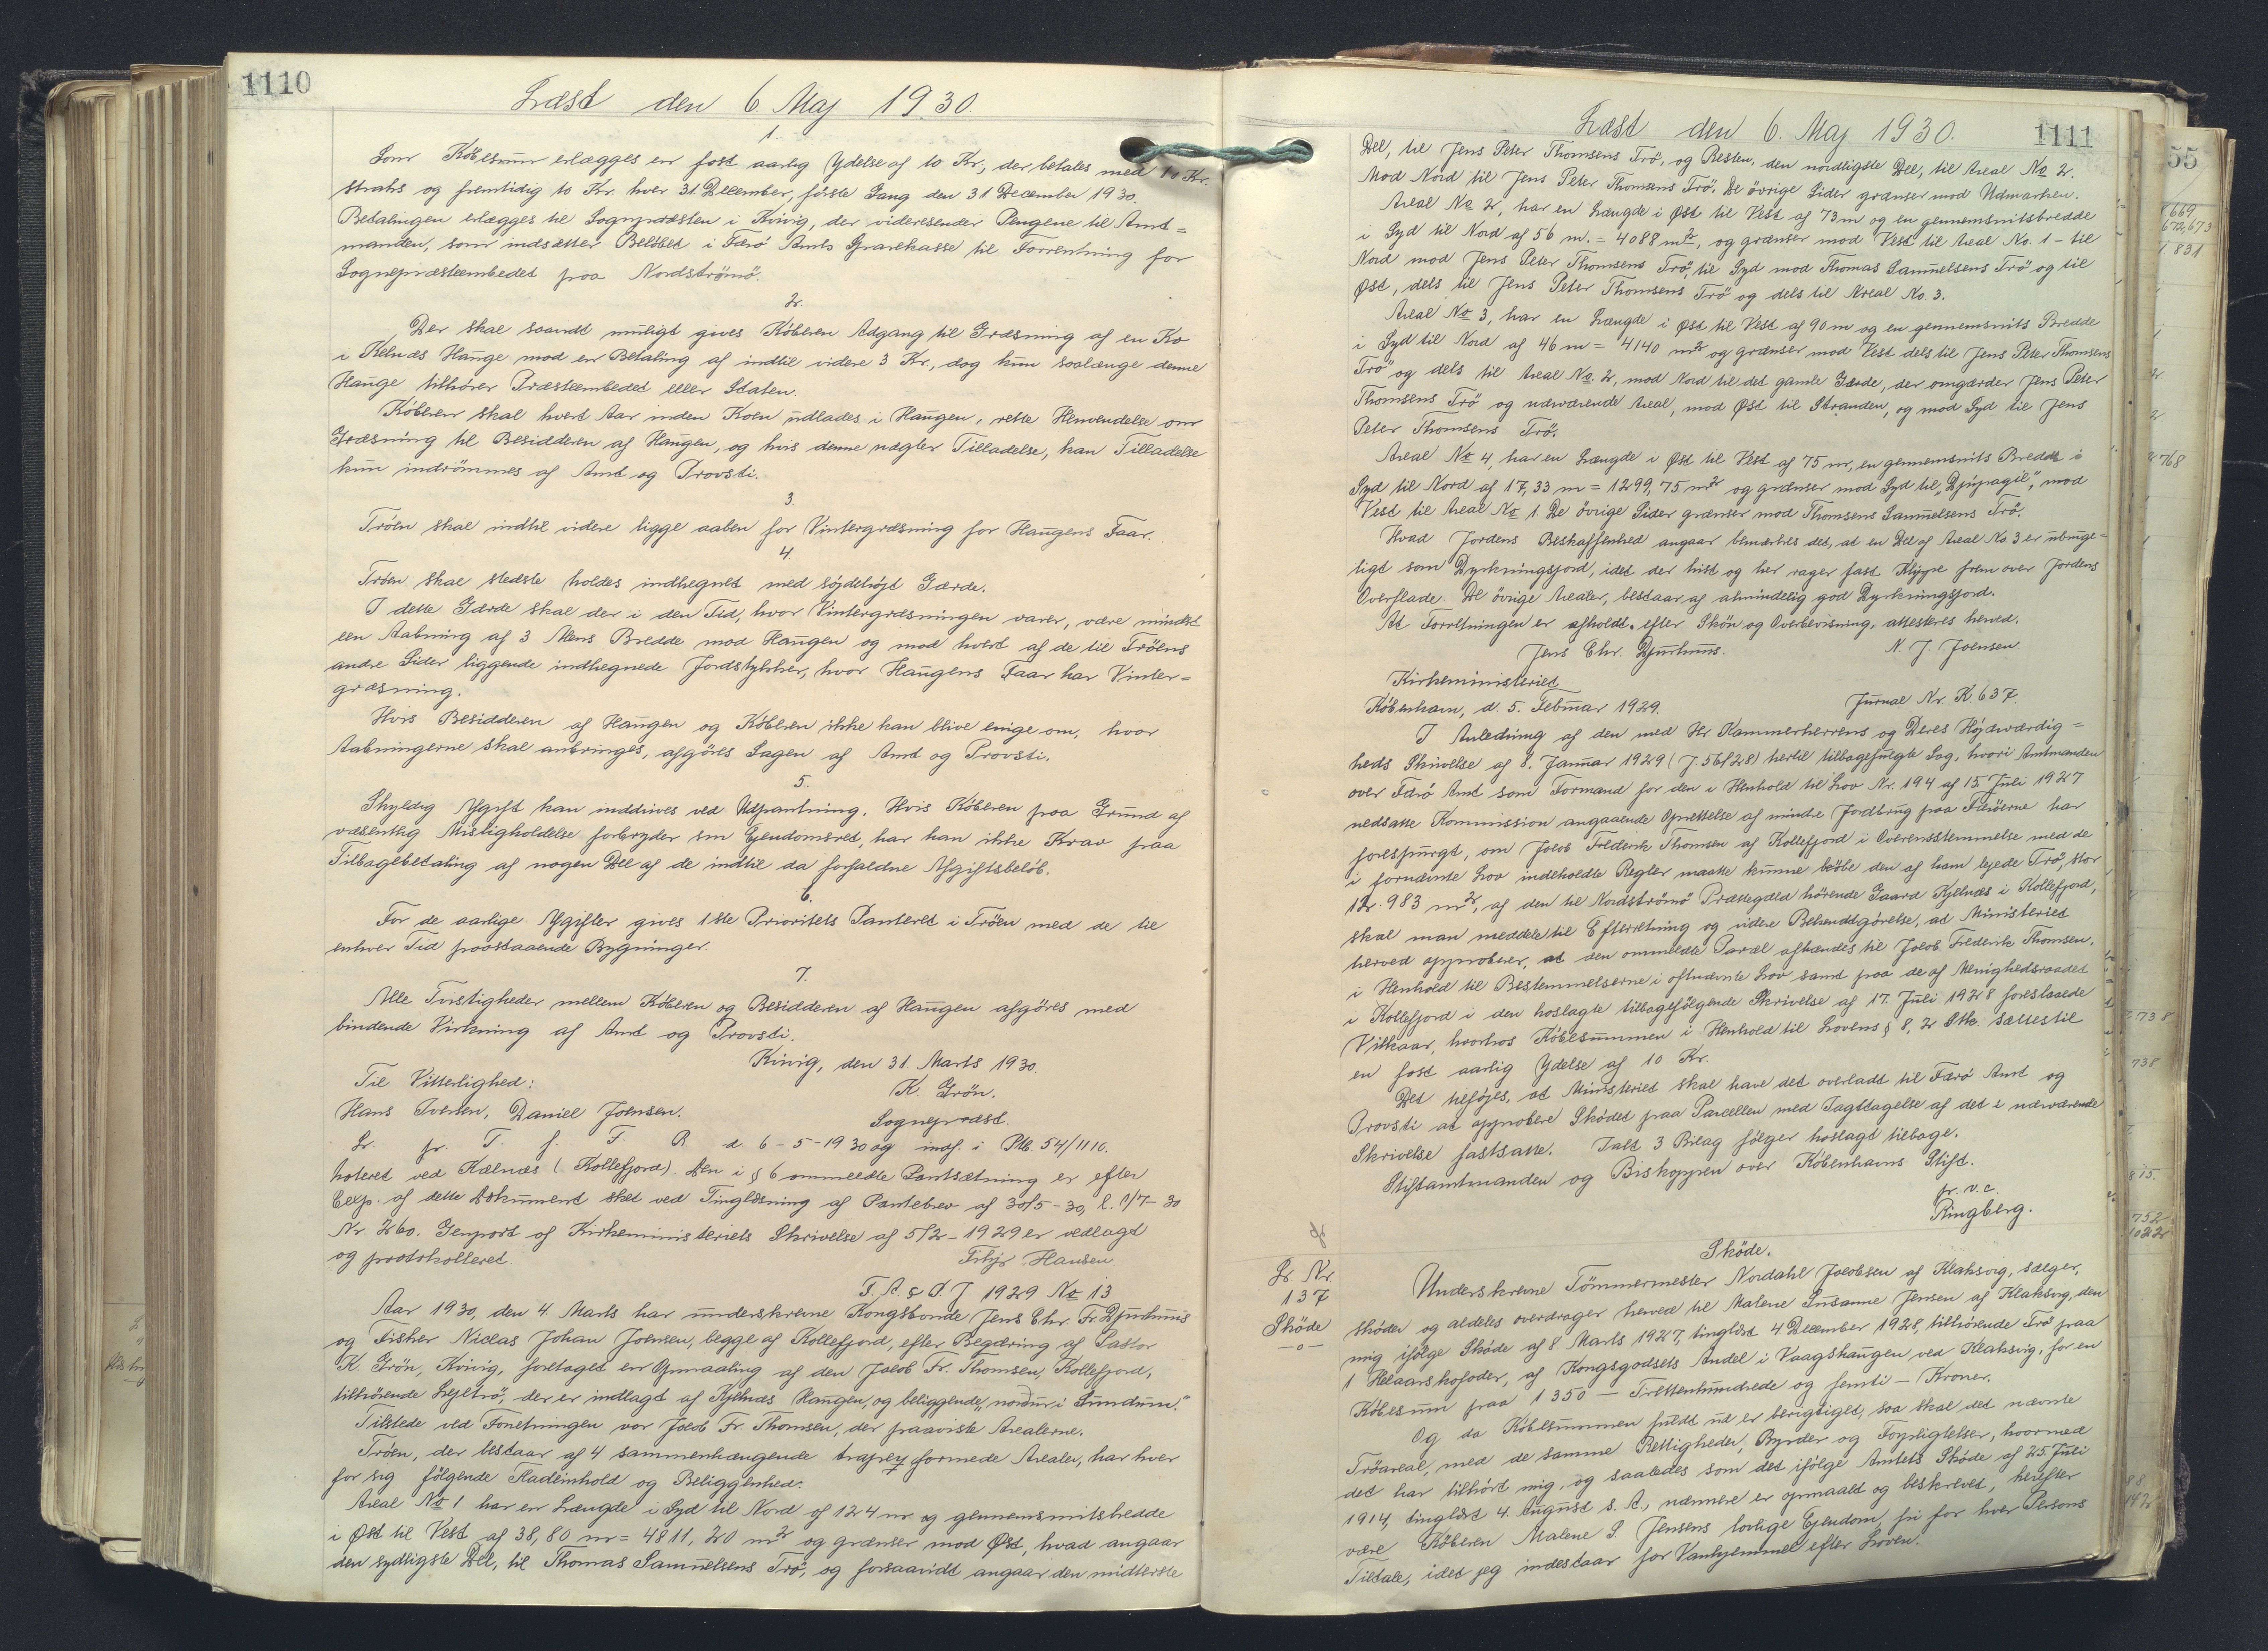 1110
Læst den 6. Maj 1930.
1.
Som Købesum erlægges en fast aarlig Ydelse af 10 Kr., der betales med 10 Kr.
straks og fremtidig 10 Kr. hver 31. December, første Gang den 31 December 1930.
Betalingen erlægges til Sognepræsten i Kvivig, der videresender Pengene til Amt=
manden, som indsætter Beløbet i Færø Amts Sparekasse til Forrentning for
Sognepræsteembedet paa Nordstrømø.
2.
Der skal saavidt muligt gives Køberen Adgang til Græsning af en Ko
i Kelnæs Hauge mod en Betaling af indtil videre 3 Kr., dog kun saalænge denne
Hauge tilhører Præsteembedet eller Staten.
Køberen skal hvert Aar inden Koen udlades i Haugen, rette Henvendelse om
Græsning til Besidderen af Haugen, og hvis denne nægter Tilladelse, kan Tilladelse
kun indrømmes af Amt og Provsti.
3
Trøen skal indtil videre ligge aaben for Vintergræsning for Haugens Faar.
4.
Trøen skal stedste holdes indhegnet med søjdehøjt Gærde.
I dette Gærde skal der i den Tid, hvor Vintergræsningen varer, være mindst
een Aabning af 3 Alens Bredde mod Haugen og mod hvert af de til Trøens
andre Sider liggende indhegnede Jordstykker, hvor Haugens Faar har Vinter=
græsning.
Hvis Besidderen af Haugen og Køberen ikke kan blive enige om, hvor
Aabningerne skal anbringes, afgøres Sagen af Amt og Provsti.
5.
Skyldig Afgift kan inddrives ved Udpantning. Hvis Køberen paa Grund af
væsentlig Misligholdelse forbryder sin Ejendomsret, har han ikke Krav paa
Tilbagebetaling af nogen Del af de indtil da forfaldne Afgiftsbeløb.
6.
For de aarlige Afgifter gives 1ste Prioritets Panteret i Trøen med de til
enhver Tid paastaaende Bygninger.
7.
Alle Tvistigheder mellem Køberen og Besidderen af Haugen afgøres med
bindende Virkning af Amt og Provsti.
Kvivig, den 31. Marts 1930.
Til Vitterlighed:
K. Grøn.
Hans Iversen, Daniel Joensen.
Sognepræst.
Lr. pr. T. f. F. R. d. 6-5-1930 og indf. i Ptb. 54/1110.
noteret ved Kælnæs (Kollefjord). Den i § 6 ommeldte Pantsætning er efter
Exp. af dette Dokument sket ved Tinglæsning af Pantebrev af 30/5-30, l. 1/7-30
Nr. 260. Genpart af Kirkeministeriets Skrivelse af 5/2-1929 er vedlagt
og protokolleret.
Hansen
F. A. & P. J 1929 No 13
Aar 1930, den 4. Marts har underskrevne Kongsbonde Jens Chr. Fr. Djurhuus
og Fisker Niclas Johan Joensen, begge af Kollefjord, efter Begæring af Pastor
K. Grøn, Kvivig, foretaget en Opmaaling af den Jacob Fr. Thomsen, Kollefjord,
tilhørende Lejetrø, der er indlagt af Kjelnæs Haugen, og beliggende "norður i Sundum".
Tilstede ved Forretningen var Jacob Fr. Thomsen, der paaviste Arealerne.
Trøen, der bestaar af 4 sammenhængende formede Arealer, har hver
for sig følgende Fladeinhold og Beliggenhed:
Areal No 1 har en Længde i Syd til Nord af 124 m og gennemsnitsbredde
i Øst til Vest af 38,80 m = 4811,20 m² og grænser mod Øst, hvad angaar
den sydligste Del, til Thomas Samuelsens Trø, og forsaavidt angaar den midterste
Læst den 6. Maj 1930.
1111
Del, til Jens Peter Thomsens Trø, og Resten, den nordligste Del, til Areal No 2.
Mod Nord til Jens Peter Thomsens Trø. De øvrige Sider grænser mod Udmarken.
Areal No 2, har en Længde i Øst til Vest af 73 m og en gennemsnitsbredde
i Syd til Nord af 56 m. = 4088 m², og grænser mod Vest til Areal No. 1 - til
Nord mod Jens Peter Thomsens Trø, til Syd mod Thomas Samuelsens Trø og til
Øst, dels til Jens Peter Thomsens Trø og dels til Areal No. 3.
Areal No 3, har en Længde i Øst til Vest af 90 m og en gennemsnits Bredde
i Syd til Nord af 46 m = 4140 m² og grænser mod Vest dels til Jens Peter Thomsens
Trø og dels til Areal No. 2, mod Nord til det gamle Gærde, der omgærder Jens Peter
Thomsens Trø og nærværende Areal, mod Øst til Stranden, og mod Syd til Jens
Peter Thomsens Trø.
Areal No 4, har en Længde i Øst til Vest af 75 m, en gennemsnits Bredde i
Syd til Nord af 17,33 m = 1299,75 m² og grænser mod Syd til "Djúpagil", mod
Vest til Areal No 1. De øvrige Sider grænser mod Thomsens Samuelsens Trø.
Hvad Jordens Beskaffenhed angaar bemærkes det, at en Del af Areal No. 3 er ubruge=
ligt som Dyrkningsjord, idet der hist og her rager fast Klippe frem over Jordens
Overflade. De øvrige Arealer, bestaar af almindelig god Dyrkningsjord.
At Forretningen er afholdt efter Skøn og Overbevisning, attesteres herved.
Jens Chr. Djurhuus. N. J. Joensen.
Kirkeministeriet
København, d. 5. Februar 1929. Jurnal Nr. K 637.
I Anledning af den med Hr. Kammerherrens og Deres Højærværdig=
heds Skrivelse af 8. Januar 1929 (J. 561/28) hertil tilbagefulgte Sag, hvori Amtmanden
over Færø Amt som Formand for den i Henhold til Lov Nr. 194 af 15. Juli 1927
nedsatte Kommission angaaende Oprettelse af mindre Jordbrug paa Færøerne har
forespurgt, om Jacob Frederik Thomsen af Kollefjord i Overensstemmelse med de
i fornævnte Lov indeholdte Regler maatte kunne købe den af ham lejede Trø, stor
12.983 m², af den til Nordstrømø Præstegæld hørende Gaard Kjelnæs i Kollefjord,
skal man meddele til Efterretning og videre Bekendtgørelse, at Ministeriet
herved approberer, at den ommeldte Parcel afhændes til Jacob Frederik Thomsen,
i Henhold til Bestemmelserne i oftnævnte Lov samt paa de af Menighedsraadet
i Kollefjord i den hoslagte tilbagefølgende Skrivelse af 17. Juli 1928 foreslaaede
Vilkaar, hvorhos Købesummen i Henhold til Lovens § 8, 2 Stk. sættes til
en fast aarlig Ydelse af 10 Kr.
Det tilføjes, at Ministeriet skal have det overladt til Færø Amt og
Provsti at approbere Skødet paa Parcellen med Iagttagelse af det i nærværende
Skrivelse fastsatte. Ialt 3 Bilag følger hoslagt tilbage.
Stiftamtmanden og Biskoppen over Københavns Stift.
p. v. c.
Ringberg.
Skøde.
Lr. Nr.
137
Skøde
—o—
Underskrevne Tømmermester Nordahl Jacobsen af Klaksvig, sælger,
skøder og aldeles overdrager herved til Malene Susanne Jensen af Klaksvig, den
mig ifølge Skøde af 8 Marts 1927, tinglæst 4 December 1928, tilhørende Trø paa
1 Helaarskofoder, af Kongsgodsets Andel i Vaagshaugen ved Klaksvig, for en
Købesum paa 1350 — Trettenhundrede og femti — Kroner.
Og da Købesummen fuldt ud er berigtiget, saa skal det nævnte
Trøareal, med de samme Rettigheder, Byrder og Forpligtelser, hvormed
det har tilhørt mig, og saaledes som det ifølge Amtets Skøde af 25. Juli
1914, tinglæst 4. August s. A., nærmere er opmaalt og beskrevet, herefter
være Køberen Malene S. Jensens lovlige Ejendom, fri for hver Persons
Tiltale, idet jeg indestaar for Vanhjemmel efter Loven.
55
669
672,673
831
768
738
738
815.
752
1022
88
142